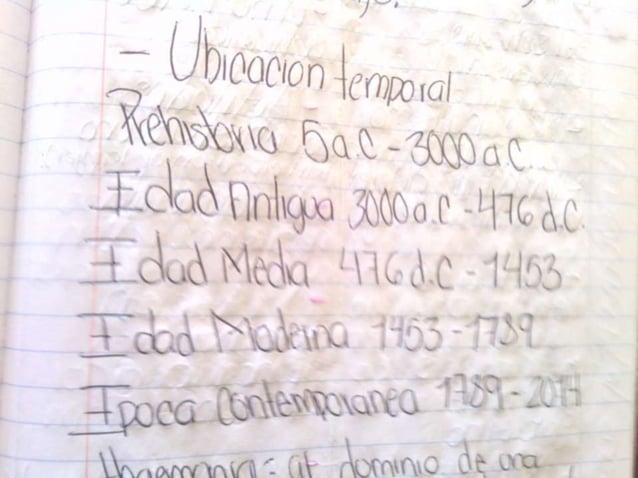 - Ubicacion temporal
Prehistoria 5 a.C - 3000 a.C.
Edad Antigua 3000 a.C - 476 d.C.
Edad Media 476 d.C - 1453
Edad Moderna 1453 - 1789
Epoca Contemporanea 1789 - 2014
dominio de una